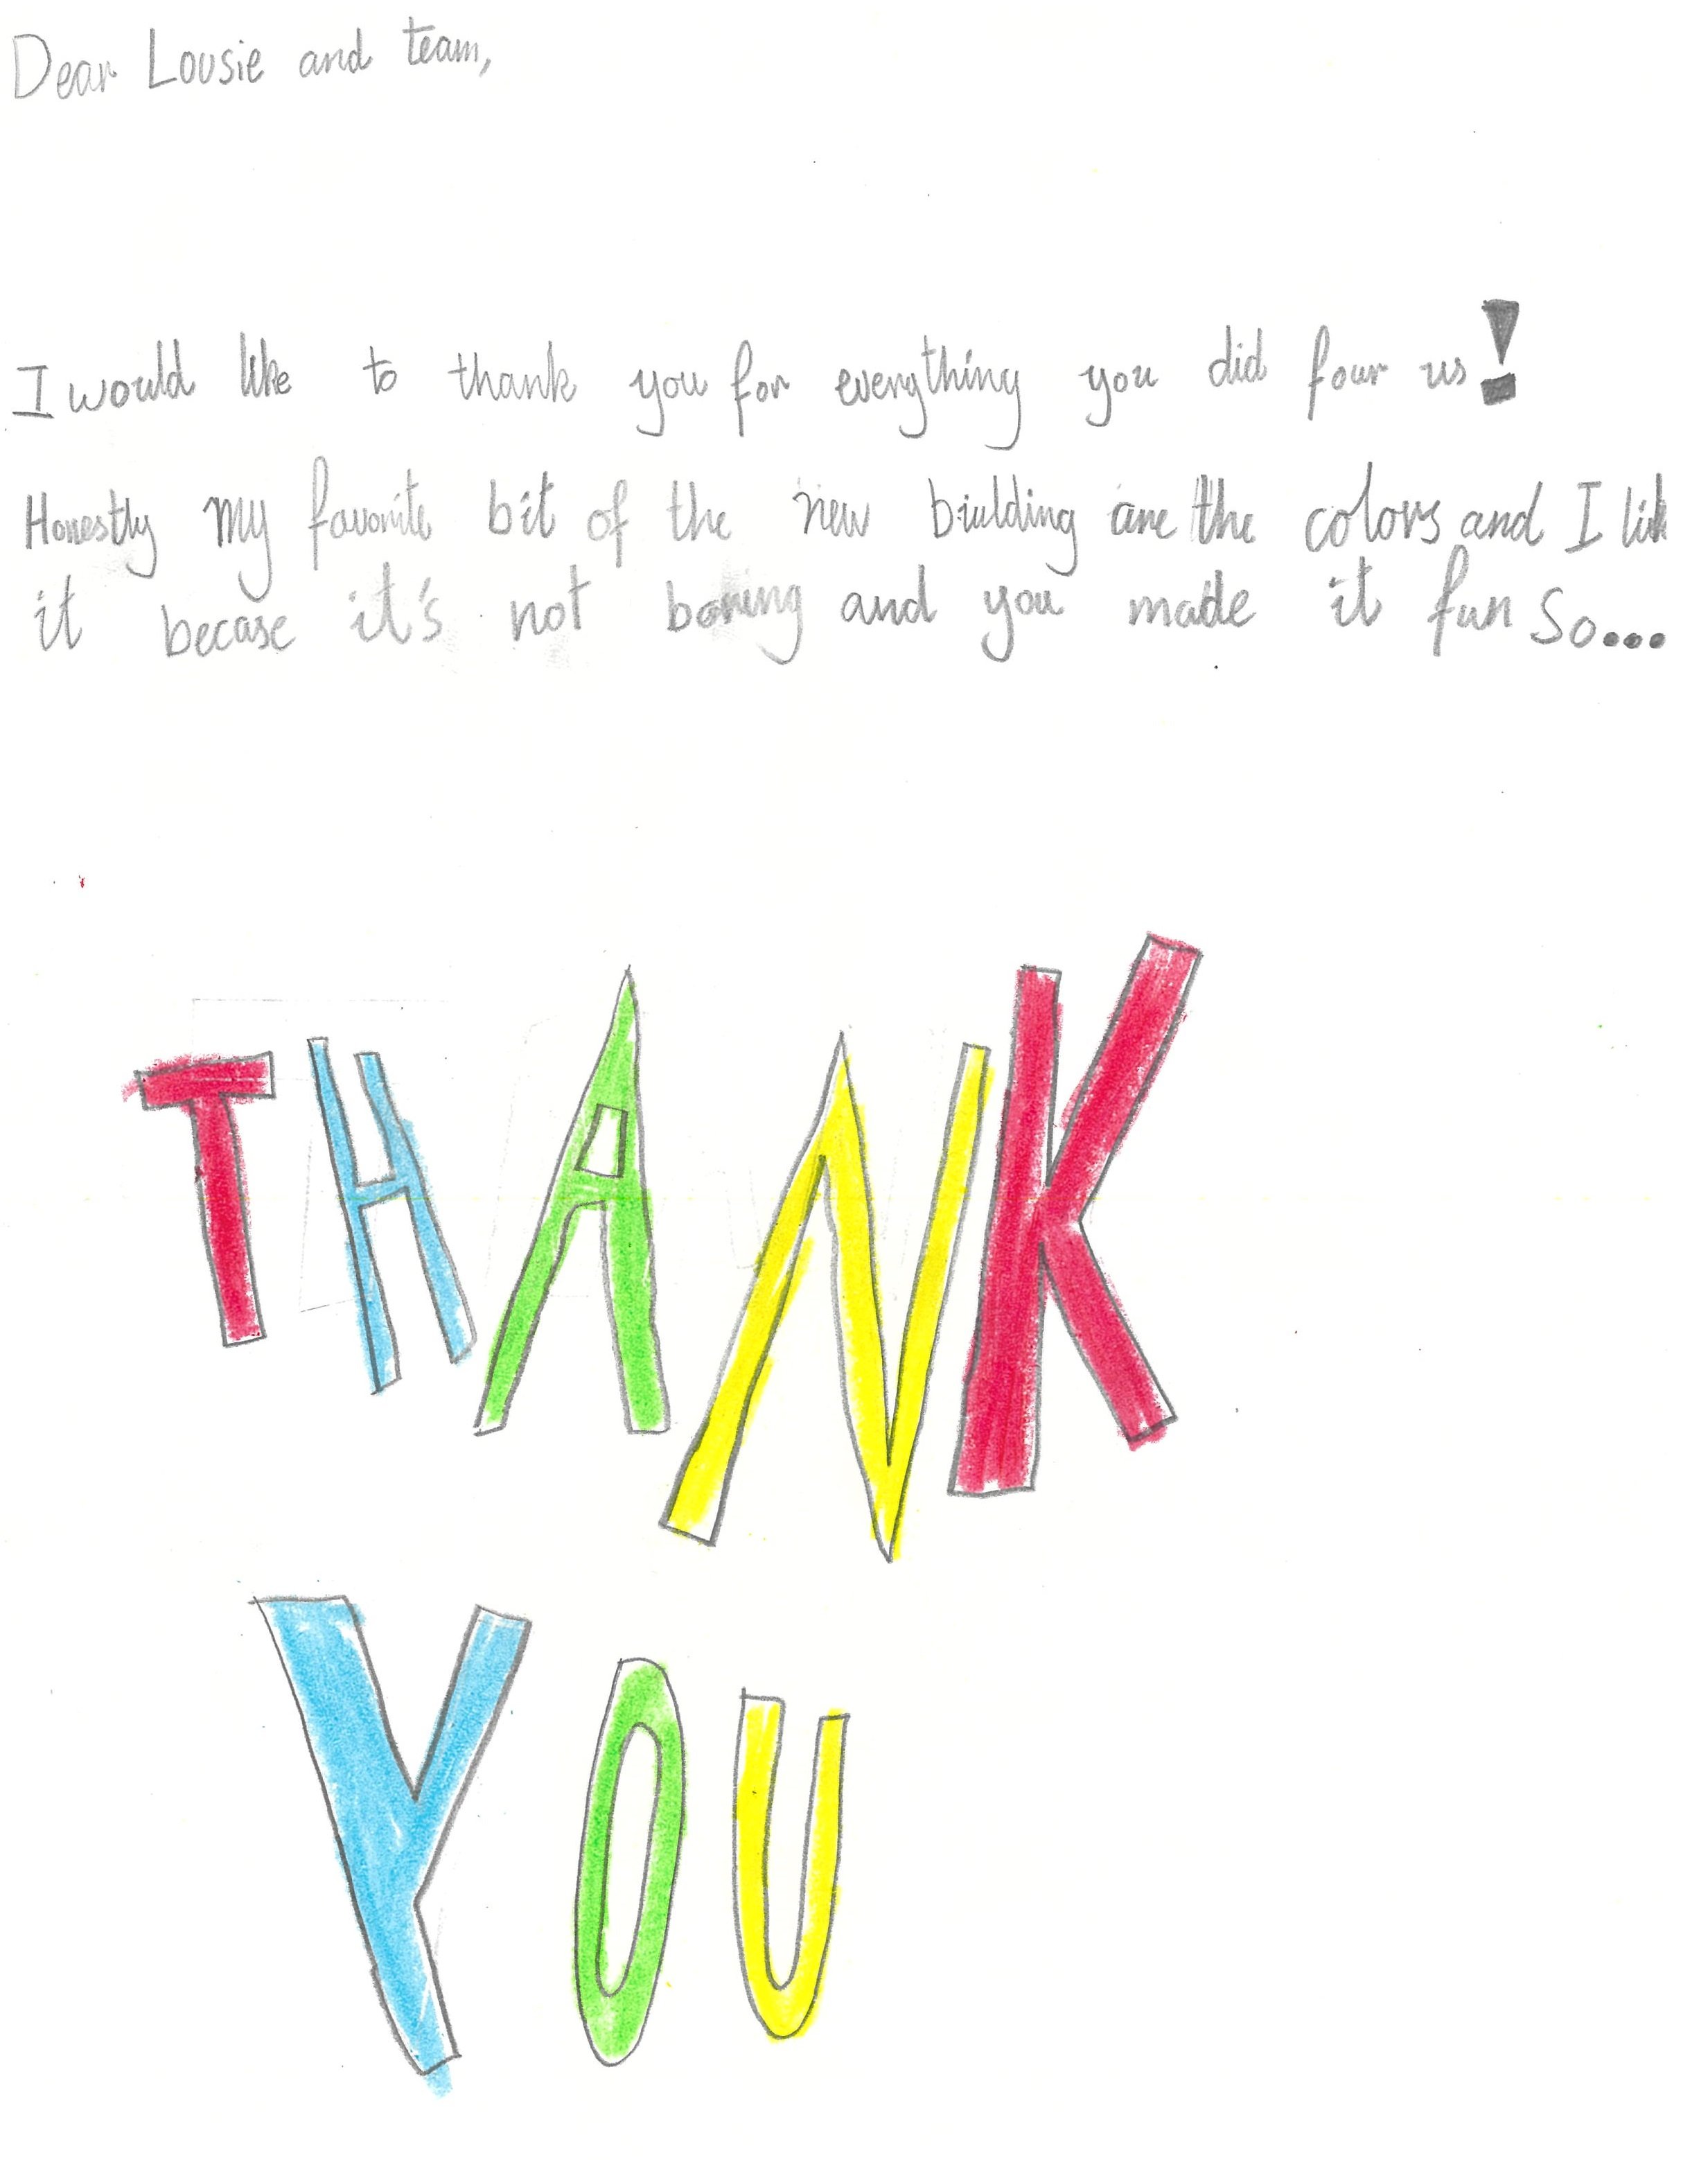 Dear Lousie and team,
I would like to thank you for everything you did four us!
Honestly my favorite bit of the new biulding are the colors and I lik
it becase it's not boring and you made it fun so...
THANK
YOU